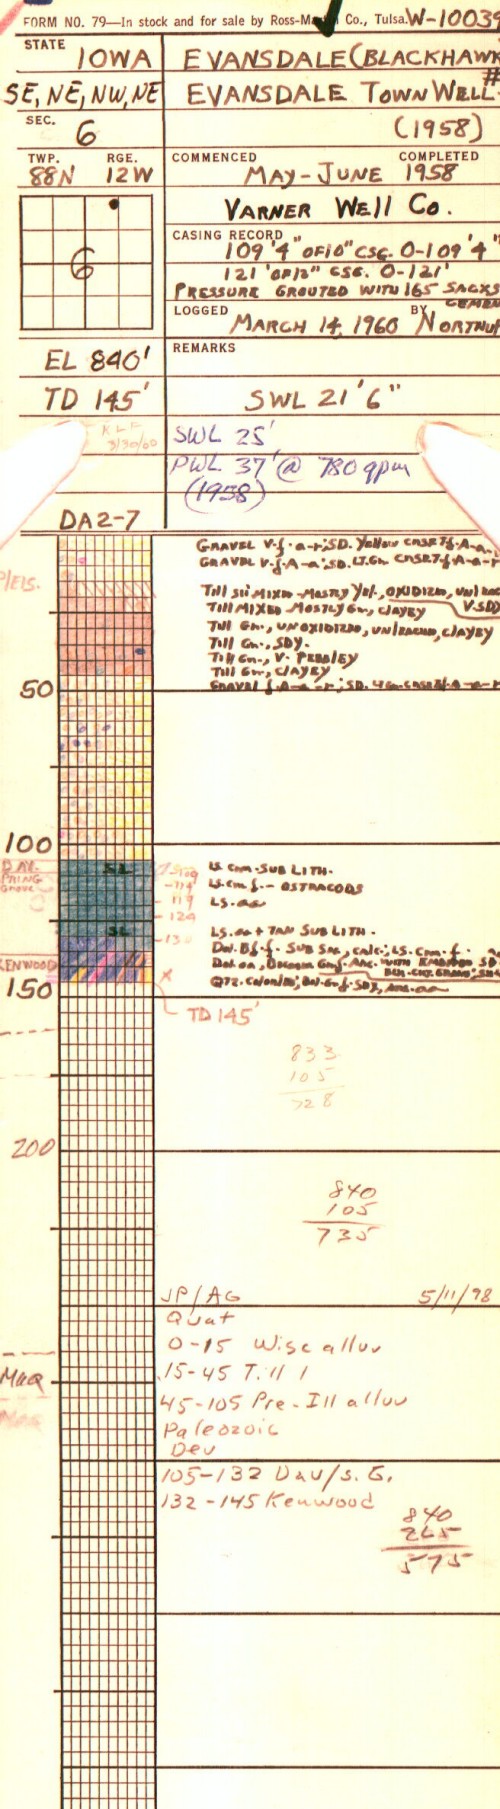 FORM NO. 79—In stock and for sale by Ross-Martin Co., Tulsa. W-10039
STATE IOWA
EVANSDALE (BLACKHAWK
SE, NE, NW, NE
EVANSDALE TOWN WELL #
SEC. 6
(1958)
TWP. 88N RGE. 12W
COMMENCED COMPLETED
MAY-JUNE 1958
VARNER WELL CO.
6
CASING RECORD
109'4" OF 10" CSG. 0-109'4"
121' OF 12" CSG. 0-121'
PRESSURE GROUTED WITH 165 SACKS
CEMEN
LOGGED MARCH 14, 1960 BY NORTHUP
EL 840'
REMARKS
TD 145'
SWL 21'6"
RLF
3/30/60
SWL 25'
PWL 37' @ 780 gpm
(1958)
DA2-7
GRAVEL V.f.-A-r; SD. YELLOW CNSRT f.A-a-
GRAVEL V.f-A-a; SD. LT.GN. CNSRT f-A-r
PLEIS.
TILL SLI MIXED-MOSTLY YEL., OXIDIZED, UNLEAC
TILL MIXED MOSTLY GN., CLAYEY V.SDY
TILL GN., UNOXIDIZED, UNLEACHED, CLAYEY
TILL GN., SDY.
TILL GN., V. PEBBLEY
TILL GN., CLAYEY
50
100
SL
LS CRM-SUB LITH.
DAV.
SPRING
GROVE
109
-114
LS. CRM f.- OSTRACODS
119
LS. aa
124
SL
LS. aa + TAN SUB LITH.
KENWOOD
150
TD 145'
833
105
728
200
840
105
735
JP/AG 5/11/98
Quat
0-15 Wisc alluv
15-45 Till
Maq
45-105 Pre-Ill alluv
Paleozoic
Dev
105-132 Dav/S.G.
132-145 Kenwood
840
265
575